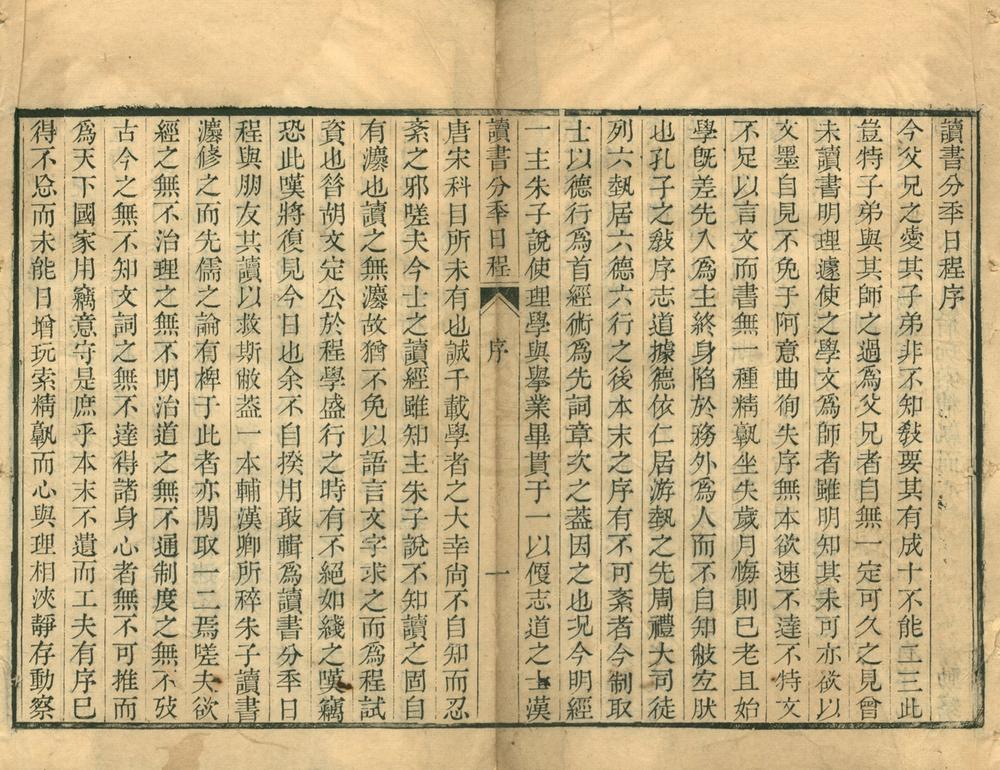 讀書分秊日程序
今父兄之愛其子弟非不知敎要其有成十不能二三此
豈特子弟與其師之過爲父兄者自無一定可久之見曾
未讀書明理遽使之學文爲師者雖明知其未可亦欲以
文墨自見不免于阿意曲徇失序無本欲速不達不特文
不足以言文而書無一種精孰坐失歲月悔則已老且始
學旣差先入爲主終身陷於務外爲人而不自知敝宐肰
也孔子之敎序志道據德依仁居游埶之先周禮大司徒
列六埶居六德六行之後本末之序有不可紊者今制取
士以德行爲首經術爲先詞章次之葢因之也況今明經
一主朱子說使理學與擧業畢貫于一以㥥志道之士漢
讀書分秊日程
序
一
唐宋科目所未有也誠千載學者之大幸尙不自知而忍
紊之邪嗟夫今士之讀經雖知主朱子說不知讀之固自
有灋也讀之無灋故猶不免以語言文字求之而爲程試
資也昝胡文定公於程學盛行之時有不絕如綫之嘆竊
恐此嘆將復見今日也余不自揆用敢輯爲讀書分秊日
程與朋友共讀以救斯敝葢一本輔漢卿所稡朱子讀書
灋修之而先儒之論有椑于此者亦閒取一二焉嗟夫欲
經之無不治理之無不明治道之無不通制度之無不攷
古今之無不知文詞之無不達得諸身心者無不可推而
爲天下國家用竊意守是庶乎本末不遺而工夫有序已
得不忘而未能日增玩索精孰而心與理相浹靜存動察